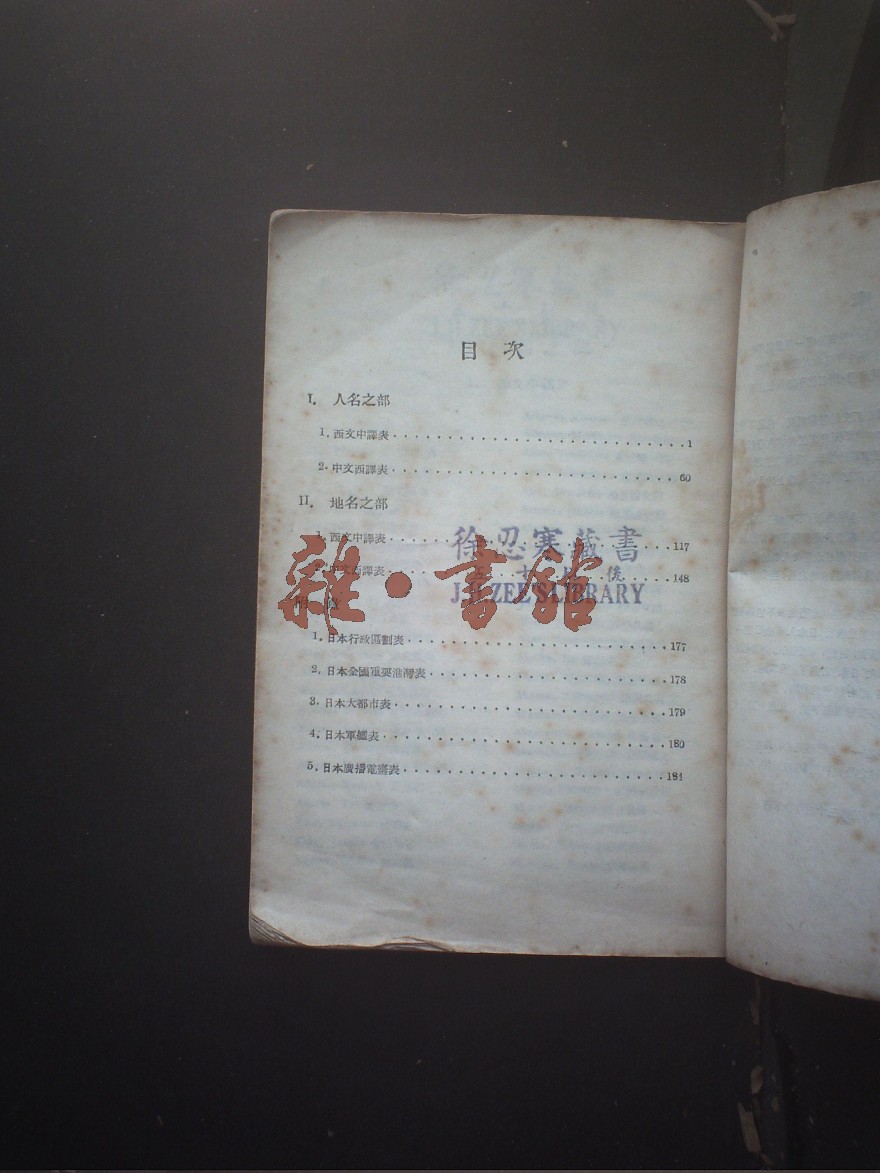 目次
I. 人名之部
1. 西文中譯表 1
2. 中文西譯表 60
II. 地名之部
1. 西文中譯表 117
2. 中文西譯表 148
徐忍寒藏書
J.H.ZEE'S LIBRARY
雜·書館
附 錄
1. 日本行政區劃表 177
2. 日本全國重要港灣表 178
3. 日本大都市表 179
4. 日本軍艦表 180
5. 日本廣播電臺表 184